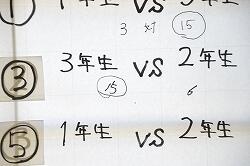 ① 1年生 VS 3年生
3 対 15
③ 3年生 VS 2年生
15 6
⑤ 1年生 VS 2年生